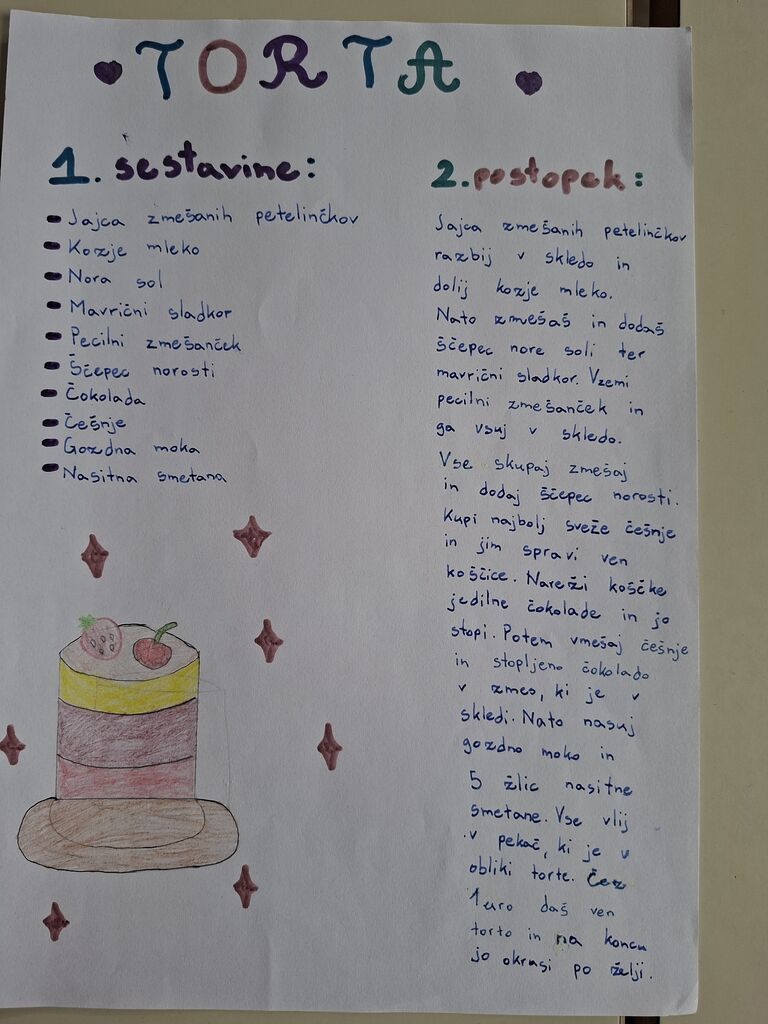 TORTA
1. sestavine:
- Jajca zmešanih petelinčkov
- Kozje mleko
- Nora sol
- Mavrični sladkor
- Pecilni zmešanček
- Ščepec norosti
- Čokolada
- Češnje
- Gozdna moka
- Nasitna smetana
2. postopek:
Jajca zmešanih petelinčkov
razbij v skledo in
dolij kozje mleko.
Nato zmešaš in dodaš
ščepec nore soli ter
mavrični sladkor. Vzemi
pecilni zmešanček in
ga vsuj v skledo.
Vse skupaj zmešaj
in dodaj ščepec norosti.
Kupi najbolj sveže češnje
in jim spravi ven
koščice. Nareži koščke
jedilne čokolade in jo
stopi. Potem vmešaj češnje
in stopljeno čokolado
v zmes, ki je v
skledi. Nato nasuj
gozdno moko in
5 žlic nasitne
smetane. Vse vlij
v pekač, ki je v
obliki torte. Čez
1 uro daš ven
torto in na koncu
jo okrasi po želji.